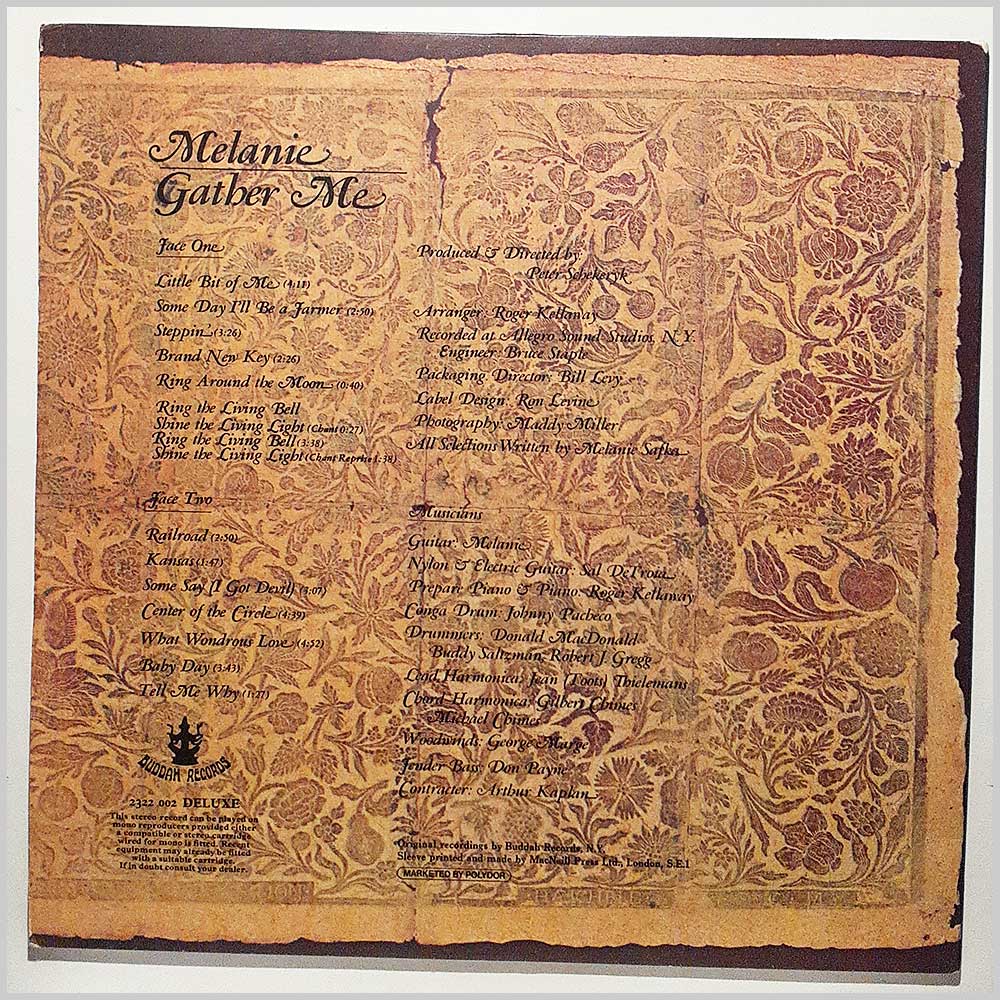 Melanie
Gather Me
Face One
Little Bit of Me (4:11)
Some Day I'll Be a Farmer (2:50)
Steppin (3:26)
Brand New Key (2:26)
Ring Around the Moon (0:40)
Ring the Living Bell
Shine the Living Light (Chant 0:27)
Ring the Living Bell (3:38)
Shine the Living Light (Chant Reprise 1:38)
Face Two
Railroad (2:50)
Kansas (1:47)
Some Say (I Got Devil) (3:07)
Center of the Circle (4:39)
What Wondrous Love (4:52)
Baby Day (3:43)
Tell Me Why (1:27)
BUDDAH RECORDS
2322 002 DELUXE
This stereo record can be played on
mono reproducers provided either
a compatible or stereo cartridge
wired for mono is fitted. Recent
equipment may already be fitted
with a suitable cartridge.
If in doubt consult your dealer.
Produced & Directed by:
Peter Schekeryk
Arranger: Roger Kellaway
Recorded at Allegro Sound Studios, N.Y.
Engineer: Bruce Staple
Packaging Director: Bill Levy
Label Design: Ron Levine
Photography: Maddy Miller
All Selections Written by Melanie Safka
Musicians
Guitar: Melanie
Nylon & Electric Guitar: Sal DeTroia
Prepare Piano & Piano: Roger Kellaway
Conga Drum: Johnny Pacheco
Drummers: Donald MacDonald
Buddy Saltzman, Robert J. Gregg
Lead Harmonica: Jean (Toots) Thielemans
Chord Harmonica: Gilbert Chimes
Michael Chimes
Woodwinds: George Marge
Fender Bass: Don Payne
Contracter: Arthur Kaplan
Original recordings by Buddah Records, N.Y.
Sleeve printed and made by MacNeill Press Ltd., London, S.E.1
MARKETED BY POLYDOR